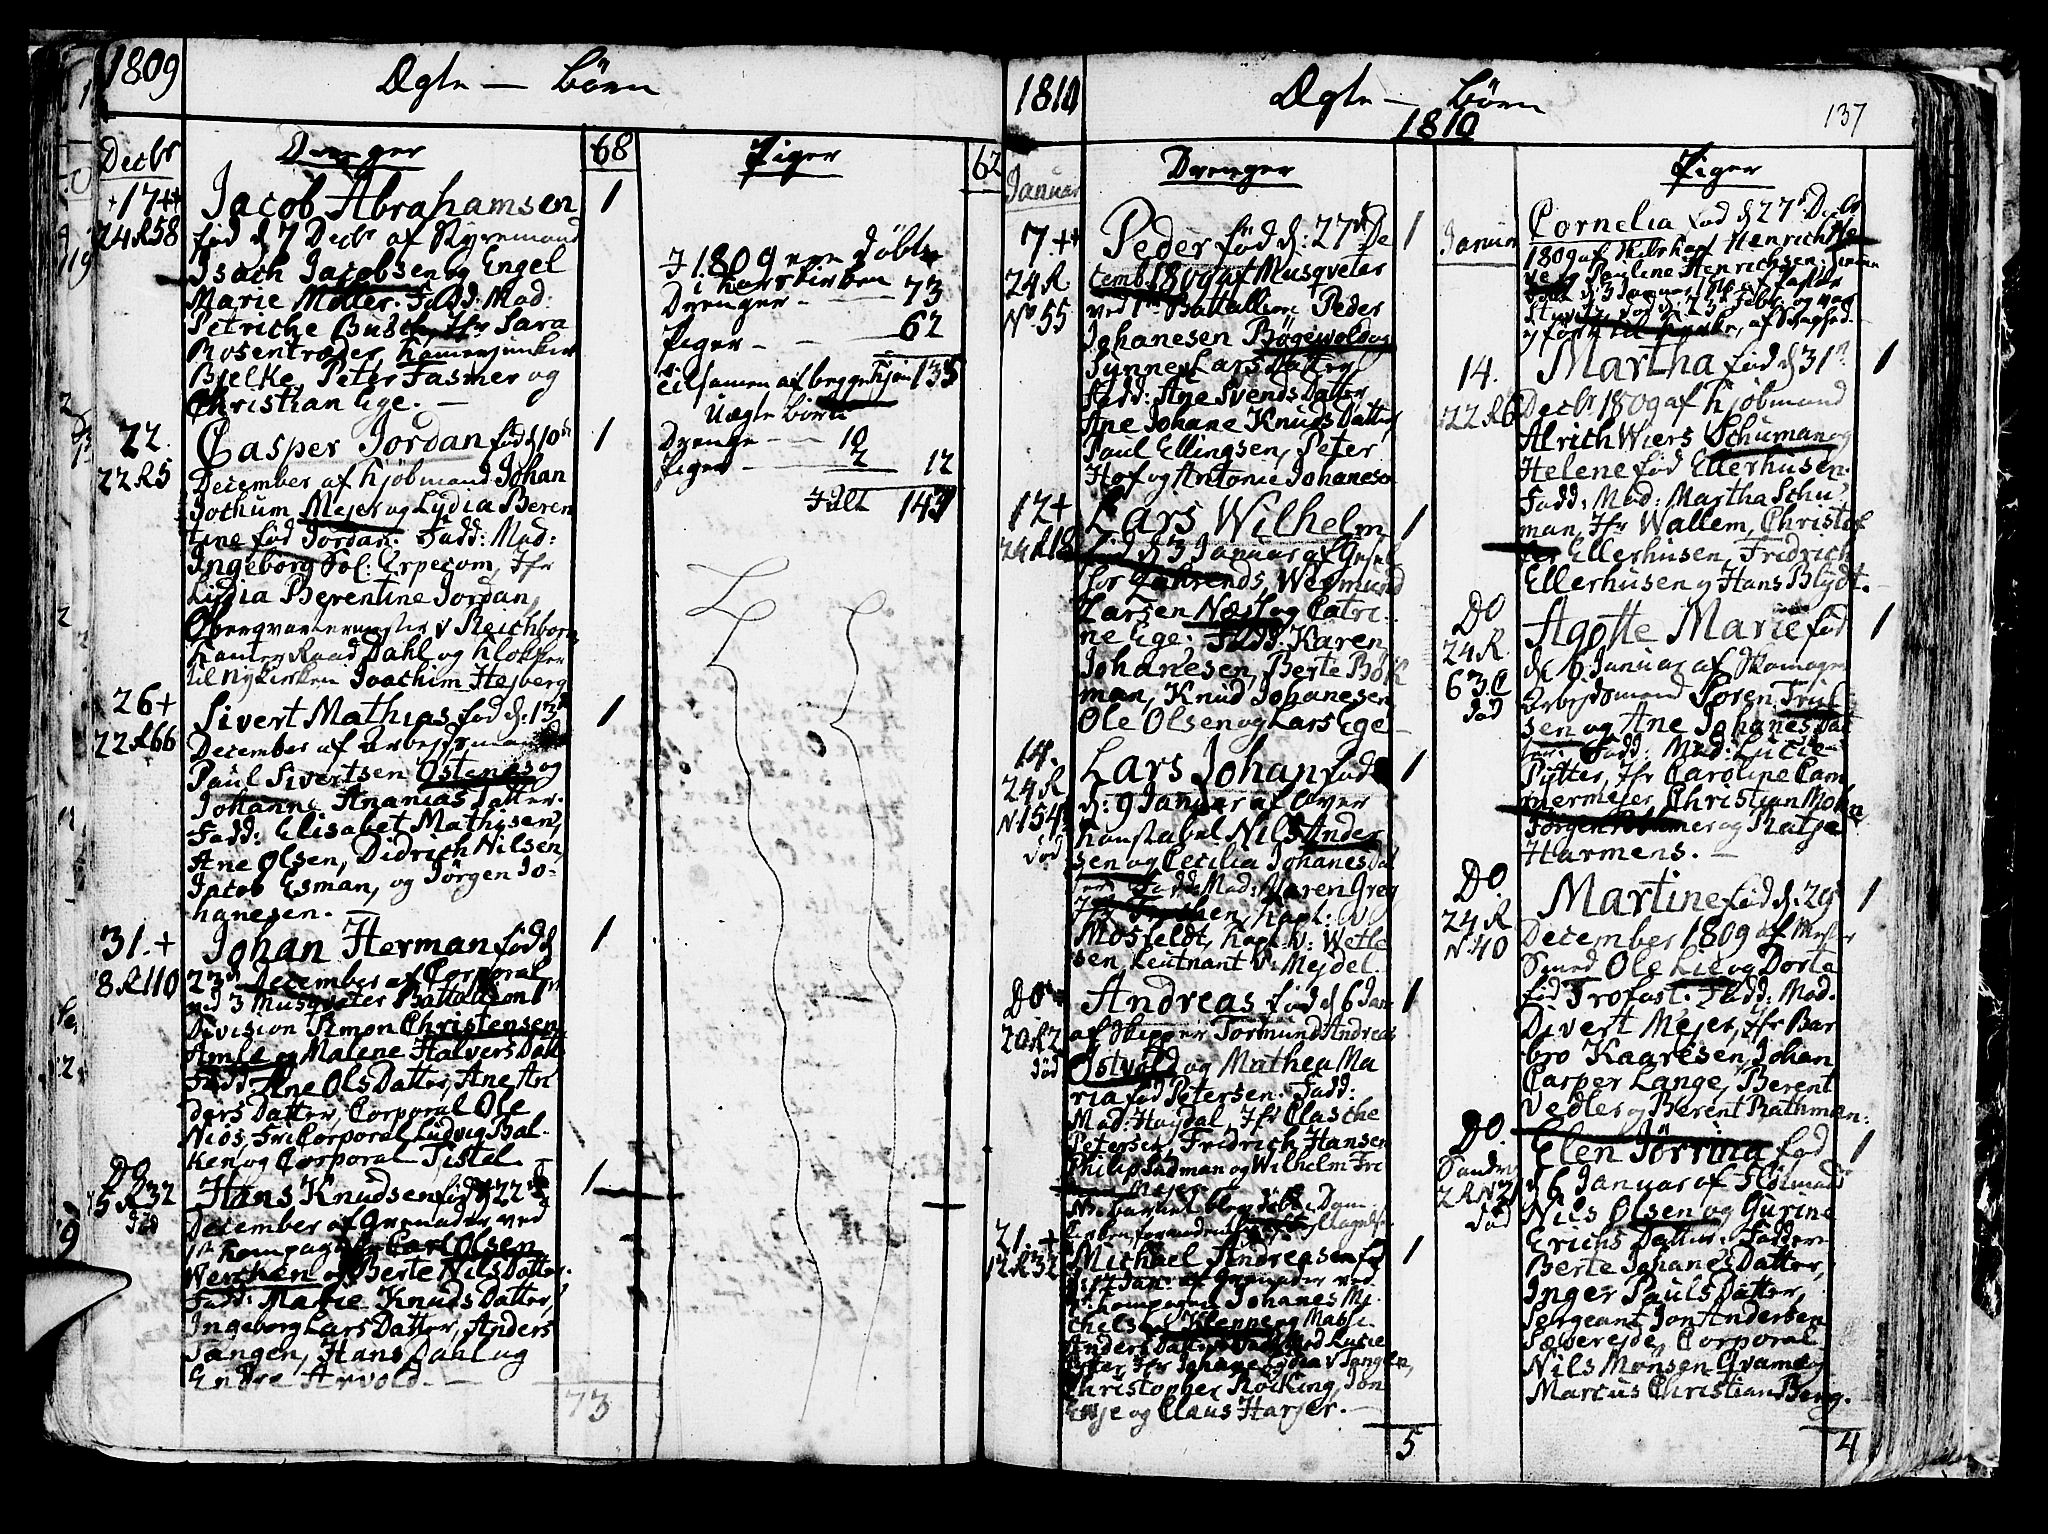 1809
Ægte — Børn
Decbr
Drenger
68
Piger
62
+17++
24R58
Jacob Abrahamsen 1
fød d 7 Decbr af Styrmand
Isach Jacobsen og Engel
Marie Møller. Fadd: Mad:
Petriche Busch, Jfr Sara
Rosentræder, Kamerjunker
Bjelke, Peter Fasmer og
Christian Ege. —
22.
22R5
Casper Jordan fød d 10de 1
December af Kjøbmand Johan
Jochum Mejer og Lydia Beren
tine fød Jordan. Fadd: Mad:
Ingeborg Sol: Erpecom, Jfr
Lydia Berentine Jordan,
Oberqvarteermester v Reichborn
Kamer Raad Dahl og Klokker
til Nykirken Joachim Hejberg
26+
22R66
Sivert Mathias fød d: 13de 1
December af Arbejdsmand
Paul Sivertsen Ostenes og
Johanne Ananias Datter.
Fadd: Elisabet Mathisen,
Ane Olsen, Didrich Nilsen,
Jacob Esman, og Jørgen Jo-
hanesen. —
31.+
8R110
Johan Herman fød d 1
23de December af Corporal
ved 3 Musqveter Battalion 1ste
Division Simon Christensen
Amle og Malene Halvers Datt
Fadd: Ane Ols Datter, Ane An
ders Datter, Corporal Ole
Nios, Fri Corporal Ludvig Bal-
ken og Corporal Tistel —
DO
15R32
død
Hans Knudsen fød d 22de 1
December af Grenader ved
1te Kompagni Carl Olsen
Werchen og Berte Nils Datter.
Fadd: Marie Knuds Datter,
Ingeborg Lars Datter, Anders
Tangen, Hans Dahl og
Endre Arvold. —
73
I 1809 ere døbte
i Korskirken
Drenger — 73
Piger — — 62
Tilsamen af begge Kjøn 135
Uægte Børn
Drenge — — 10
Piger — — 2 12
I alt 147
1810
Ægte — Børn
1810
137
Januar
Drenger
Piger
7.++
24R
No 55
Peder fød d: 27de De 1
cemb. 1809 af Musqveter
ved 1te Battallion Peder
Johanesen Bøgevold og
Synneve Lars Datter
Fadd: Ane Svends Datter
Ane Johane Knuds Datter
Paul Ellingsen, Peter
Hof og Antonie Johanesen
12+
24R18
Lars Wilhelm 1
fød d 3 Januar af
for Wegmund
Larsen Næst og Catri-
ne Ege. Fadd: Karen
Johanesen, Berte Bøk
man, Knud Johanesen
Ole Olsen og Lars Ege —
14.
24R
N 154
død
Lars Johan fød 1
d: 9 Januar af Over
Konstabel Nils Ander
sen og Cecilia Johanes Dat
ter. Fadd: Mad: Maren Greg
Jfr Kapt: v
Mosfeldt, Kapt. v: Wetle
sen Leutnant v: Mejdel
DO
20R2
død
Andreas fød d 6 Jan- 1
af Skipper Tormund Andreas
Østvold og Mathea Ma
ria fød Petersen. Fadd:
Mad: Hojdal, Jfr Clasche
Petersen, Fridrich Hansen
Philip Sadman og Wilhelm Fri
Mejer
NB. barnet blev døbt i Dom
kirken
21.+
12R32
Michael Andreas fød 1
d: 17 Jan: af Grenader ved
Kompagni Johanes Mi-
chelsen Kleppe og Mabli
Anders Datter. Fadd: Mad Lucie
Christopher Røcking, Jon
Enje og Claus Harjer. —
5
Januar
Cornelia fød d 27de Decbr
1809 af Henrich
og Pauline Henrichsen.
14.
22R6
Martha fød d 31te 1
Decbr 1809 af Kjøbmand
Alrich Wiers Schuman og
Helene fød Ellerhusen.
Fadd: Mad: Martha Schu
man, Jfr Wallem, Christof
fer Ellerhusen, Fridrich
Ellerhusen og Hans Blydt. —
DO
24R
63C
død
Agotte Marie fød 1
d: 6 Januar af
Arbejdsmand Søren Trul
sen og Ane Johanes Dat
ter. Fadd: Mad: Lucie
Pytter, Jfr Caroline Cam
mermejer, Christian Mohn,
Jørgen og Ratje
Harmens. —
DO.
24R
N 40
Martine fød d: 29de 1
December 1809 af Mester
Smed Ole Lie og Dorte
fød Trofast. Fadd: Mad.
Divert Mejer, Jfr Bar
bro Kaaresen, Johan
Casper Lange, Berent
Vedler og Berent Rathman:
DO.
Sandv
2RN21
død
Elen Jørrina fød 1
d 6 Januar af Fløtmand
Nils Olsen og Gurine
Erichs Datter. Faddere
Berte Johanes Datter,
Inger Pauls Datter,
Sergeant Jon Andersen
Sævereide, Corporal
Nils Monsen Gram og
Marcus Christian Berg.
4